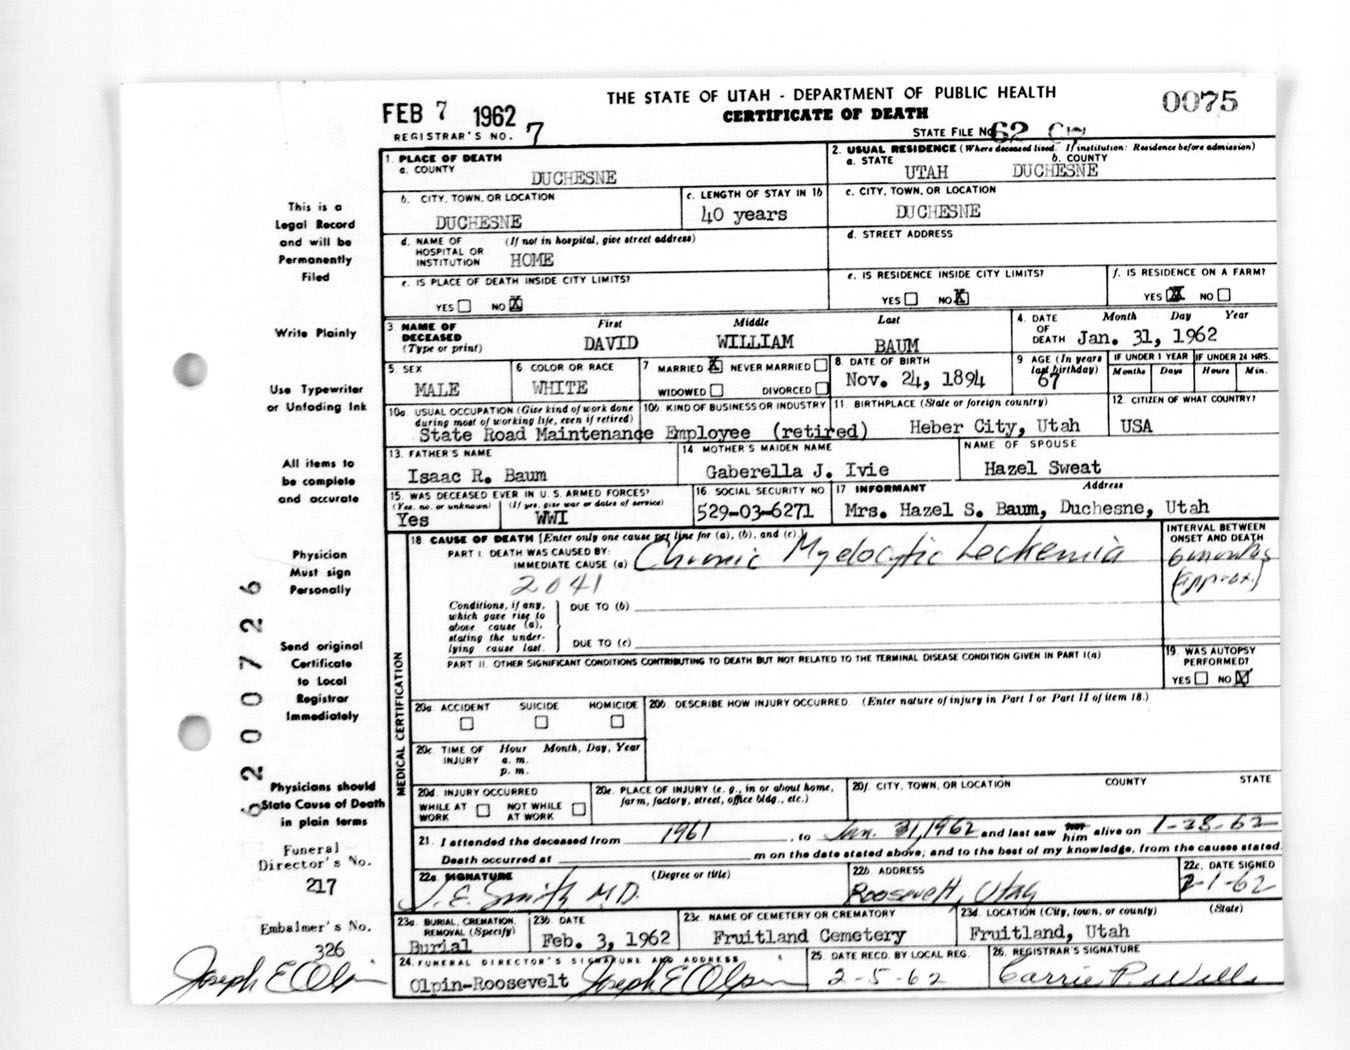 THE STATE OF UTAH - DEPARTMENT OF PUBLIC HEALTH
CERTIFICATE OF DEATH
0075
FEB 7 1962
REGISTRAR'S NO. 7
STATE FILE NO. 62
1. PLACE OF DEATH
a. COUNTY
DUCHESNE
2. USUAL RESIDENCE (Where deceased lived. If institution: Residence before admission)
a. STATE
UTAH
b. COUNTY
DUCHESNE
b. CITY, TOWN, OR LOCATION
DUCHESNE
c. LENGTH OF STAY IN 1b
40 years
c. CITY, TOWN, OR LOCATION
DUCHESNE
d. NAME OF HOSPITAL OR INSTITUTION
(If not in hospital, give street address)
HOME
d. STREET ADDRESS
e. IS PLACE OF DEATH INSIDE CITY LIMITS?
YES NO X
e. IS RESIDENCE INSIDE CITY LIMITS?
YES NO X
f. IS RESIDENCE ON A FARM?
YES X NO
3. NAME OF DECEASED (Type or print)
First Middle Last
DAVID WILLIAM BAUM
4. DATE OF DEATH
Month Day Year
Jan. 31, 1962
5. SEX
MALE
6. COLOR OR RACE
WHITE
7. MARRIED X NEVER MARRIED
WIDOWED DIVORCED
8. DATE OF BIRTH
Nov. 24, 1894
9. AGE (In years last birthday)
67
IF UNDER 1 YEAR
Months Days
IF UNDER 24 HRS.
Hours Min.
10a. USUAL OCCUPATION (Give kind of work done during most of working life, even if retired)
10b. KIND OF BUSINESS OR INDUSTRY
State Road Maintenance Employee (retired)
11. BIRTHPLACE (State or foreign country)
Heber City, Utah
12. CITIZEN OF WHAT COUNTRY?
USA
13. FATHER'S NAME
Isaac R. Baum
14. MOTHER'S MAIDEN NAME
Gaberella J. Ivie
NAME OF SPOUSE
Hazel Sweat
15. WAS DECEASED EVER IN U. S. ARMED FORCES?
(Yes, no, or unknown) (If yes, give war or dates of service)
Yes WWI
16. SOCIAL SECURITY NO
529-03-6271
17. INFORMANT Address
Mrs. Hazel S. Baum, Duchesne, Utah
18. CAUSE OF DEATH [Enter only one cause per line for (a), (b), and (c).]
PART I. DEATH WAS CAUSED BY:
IMMEDIATE CAUSE (a)
Chronic Myelocytic Leckemia
2041
INTERVAL BETWEEN ONSET AND DEATH
6 months
(approx.)
Conditions, if any, which gave rise to above cause (a), stating the underlying cause last.
DUE TO (b)
DUE TO (c)
PART II. OTHER SIGNIFICANT CONDITIONS CONTRIBUTING TO DEATH BUT NOT RELATED TO THE TERMINAL DISEASE CONDITION GIVEN IN PART I(a)
19. WAS AUTOPSY PERFORMED?
YES NO X
20a. ACCIDENT SUICIDE HOMICIDE
20b. DESCRIBE HOW INJURY OCCURRED. (Enter nature of injury in Part I or Part II of item 18.)
20c. TIME OF INJURY
Hour Month, Day, Year
a. m.
p. m.
20d. INJURY OCCURRED
WHILE AT WORK NOT WHILE AT WORK
20e. PLACE OF INJURY (e. g., in or about home, farm, factory, street, office bldg., etc.)
20f. CITY, TOWN, OR LOCATION COUNTY STATE
21. I attended the deceased from 1961, to Jan. 31, 1962 and last saw him alive on 1-28-62
Death occurred at m on the date stated above; and to the best of my knowledge, from the causes stated.
22a. SIGNATURE (Degree or title)
J. E. Smith M.D.
22b. ADDRESS
Roosevelt, Utah
22c. DATE SIGNED
2-1-62
23a. BURIAL, CREMATION, REMOVAL (Specify)
Burial
23b. DATE
Feb. 3, 1962
23c. NAME OF CEMETERY OR CREMATORY
Fruitland Cemetery
23d. LOCATION (City, town, or county) (State)
Fruitland, Utah
24. FUNERAL DIRECTOR'S SIGNATURE AND ADDRESS
Olpin-Roosevelt Joseph E Olpin
25. DATE RECD. BY LOCAL REG.
2-5-62
26. REGISTRAR'S SIGNATURE
Carrie P. Wills
MEDICAL CERTIFICATION
This is a
Legal Record
and will be
Permanently
Filed
Write Plainly
Use Typewriter
or Unfading Ink
All items to
be complete
and accurate
Physician
Must sign
Personally
Send original
Certificate
to Local
Registrar
Immediately
Physicians should
State Cause of Death
in plain terms
Funeral
Director's No.
217
Embalmer's No.
326
Joseph E Olpin
6200726